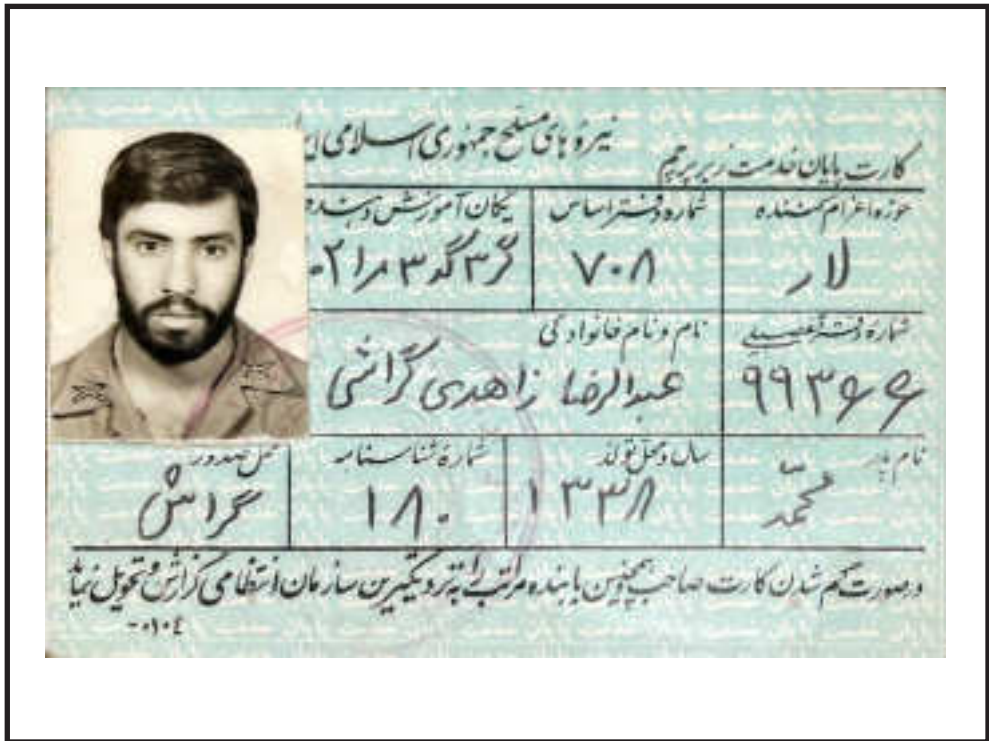 نیروهای مسلح جمهوری اسلامی ایرا
کارت پایان خدمت زیر پرچم
حوزه اعزام کننده
شماره دفتر اساس
یگان آموزش دهنده
لار
۷۰۸
شماره دفتر تعیین
نام و نام خانوادگی
۹۹۳۶۶
عبدالرضا زاهدی گراشی
نام پدر
سال و محل تولد
شماره شناسنامه
محل صدور
محمّد
۱۳۳۸
۱۸۰
گراش
درصورت گم شدن کارت صاحب و همچنین یابنده مراتب را به نزدیکترین سازمان انتظامی گزارش و تحویل نماید